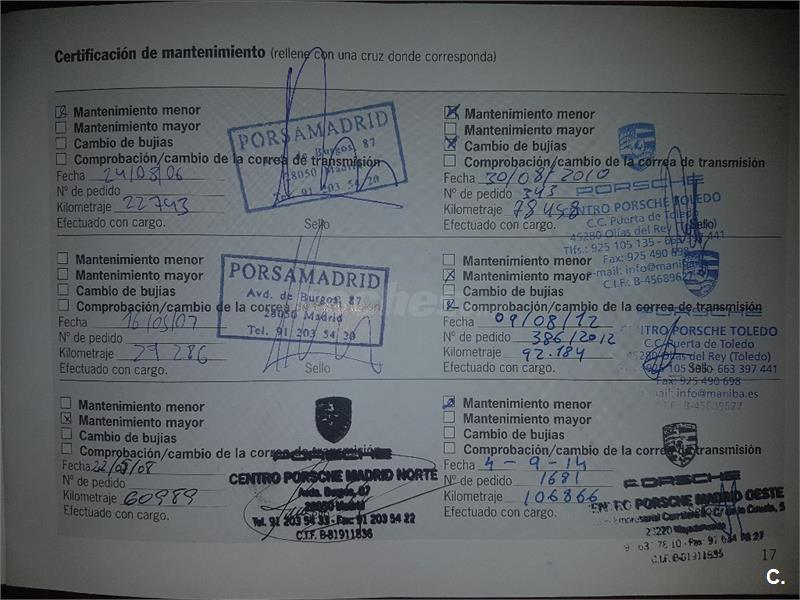 Certificación de mantenimiento (rellene con una cruz donde corresponda)
Mantenimiento menor
Mantenimiento mayor
Cambio de bujias
Comprobación/cambio de la correa de transmisión
Fecha 24/08/06
Nº de pedido
Kilometraje 22743
Efectuado con cargo.
Sello
PORSAMADRID
Avd. de Burgos, 87
28050 Madrid
Tel. 91 203 54 20
Mantenimiento menor
Mantenimiento mayor
Cambio de bujias
Comprobación/cambio de la correa de transmisión
Fecha 16/05/07
Nº de pedido
Kilometraje 29286
Efectuado con cargo.
Sello
PORSAMADRID
Avd. de Burgos, 87
28050 Madrid
Tel. 91 203 54 20
Mantenimiento menor
Mantenimiento mayor
Cambio de bujias
Comprobación/cambio de la correa de transmisión
Fecha 22/05/08
Nº de pedido
Kilometraje 60989
Efectuado con cargo.
Sello
CENTRO PORSCHE MADRID NORTE
Avda. Burgos, 87
28050 Madrid
Tel. 91 203 94 33 - Fax: 91 203 54 22
C.I.F. B-81911836
Mantenimiento menor
Mantenimiento mayor
Cambio de bujias
Comprobación/cambio de la correa de transmisión
Fecha 30/08/2010
Nº de pedido 343
Kilometraje 78458
Efectuado con cargo.
Sello
PORSCHE
CENTRO PORSCHE TOLEDO
C.C. Puerta de Toledo
45280 Olías del Rey
Tlfs.: 925 105 135 - 663 397 441
Fax: 925 490 698
e-mail: info@maniba.es
C.I.F.: B-45689627
Mantenimiento menor
Mantenimiento mayor
Cambio de bujias
Comprobación/cambio de la correa de transmisión
Fecha 09/08/12
Nº de pedido 386/2012
Kilometraje 92.184
Efectuado con cargo.
Sello
CENTRO PORSCHE TOLEDO
C.C. Puerta de Toledo
45280 Olías del Rey (Toledo)
925 105 135 - 663 397 441
Fax: 925 490 698
mail: info@maniba.es
C.I.F.: B-45689627
Mantenimiento menor
Mantenimiento mayor
Cambio de bujias
Comprobación/cambio de la correa de transmisión
Fecha 4-9-14
Nº de pedido 1681
Kilometraje 106866
Efectuado con cargo.
Sello
PORSCHE
CENTRO PORSCHE MADRID OESTE
Empresarial Carretera de la Coruña,
28220 Majadahonda
C.I.F. B-81911836
17
C.